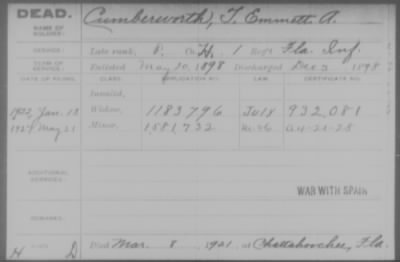 DEAD.
NAME OF SOLDIER:
Cumberworth, T. Emmett A.
SERVICE:
Late rank, P, Co. H, 1 Reg't Fla. Inf.
TERM OF SERVICE:
Enlisted May 20, 1898 Discharged Dec 3, 1898
DATE OF FILING. CLASS. APPLICATION NO. LAW. CERTIFICATE NO.
Invalid,
1922 Jan. 18 Widow, 1183796 Jul 8 932,081
1927 May 21 Minor, 1581,732
ADDITIONAL SERVICES:
WAR WITH SPAIN
REMARKS:
H D Died Mar. 8, 1921, at Chattahoochee, Fla.